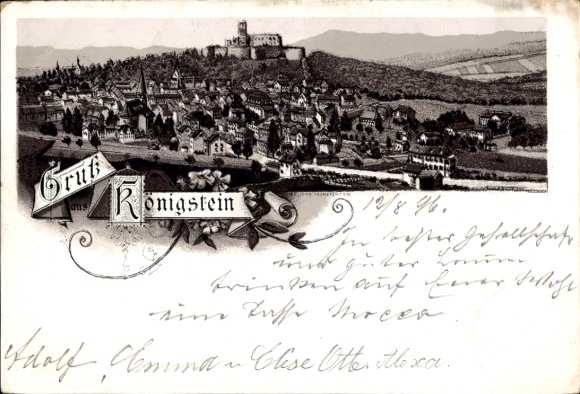 Gruß
aus
Königstein
12/8 96.
In bester Gesellschaft
und guter Laune
trinken auf Euer Wohl
eine Tasse Mocca.
Adolf, Emma u. Elise Otto. Alexa.